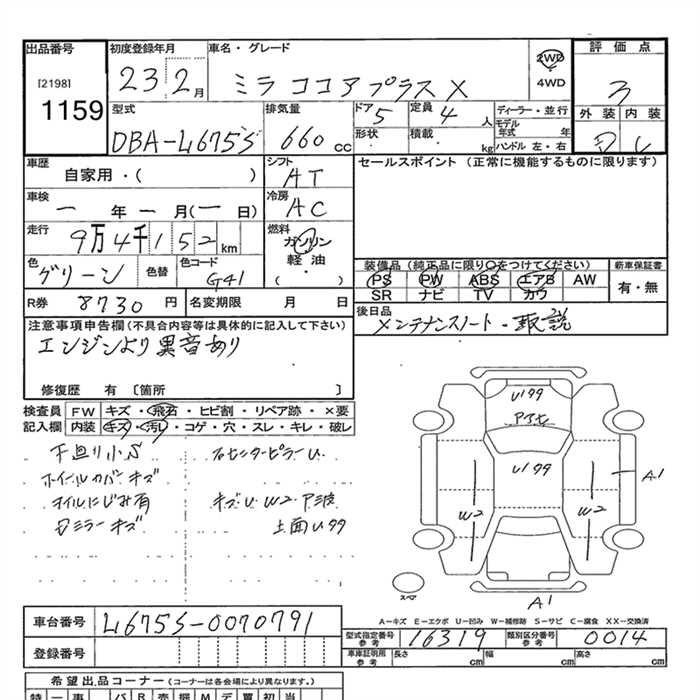 出品番号
[2198]
1159
初度登録年月
23 2月
車名・グレード
ミラ ココアプラス X
2WD
4WD
評価点
3
外装 内装
型式
DBA-L675S
排気量
660 cc
ドア 5
定員 4 人
形状
積載 kg
ディーラー・並行
モデル年式 年
ハンドル 左・右
車歴
自家用・( )
シフト
AT
セールスポイント (正常に機能するものに限ります)
車検
一 年 一 月(一 日)
冷房
AC
走行
9万4千152km
燃料
ガソリン
軽油
( )
色
グリーン
色替
色コード
G41
装備品 (純正品に限り○をつけてください)
PS PW ABS エアB AW
SR ナビ TV カワ
新車保証書
有・無
R券 8730 円
名変期限 月 日
後日品
メンテナンスノート・取説
注意事項申告欄 (不具合内容等は具体的に記入して下さい)
エンジンより異音あり
修復歴 有 〔箇所 〕
検査員
記入欄
FW キズ・飛石・ヒビ割・リペア跡・×要
内装 キズ・汚レ・コゲ・穴・スレ・キレ・破レ
下廻り小S
ホイールカバーキズ
オイルにじみ有
ミラーキズ
右センターピラーU
キズU W2 ア波
上面U99
U199
U199
W2
W2
A1
A1
スペア
A-キズ E-エクボ U-凹み W-補修跡 S-サビ C-腐食 XX-交換済
車台番号
L675S-0070791
登録番号
型式指定番号 参考
16319
類別区分番号 参考
0014
車庫証明用 参考
長さ cm 幅 cm 高さ cm
希望出品コーナー (コーナーは各会場により異なります。)